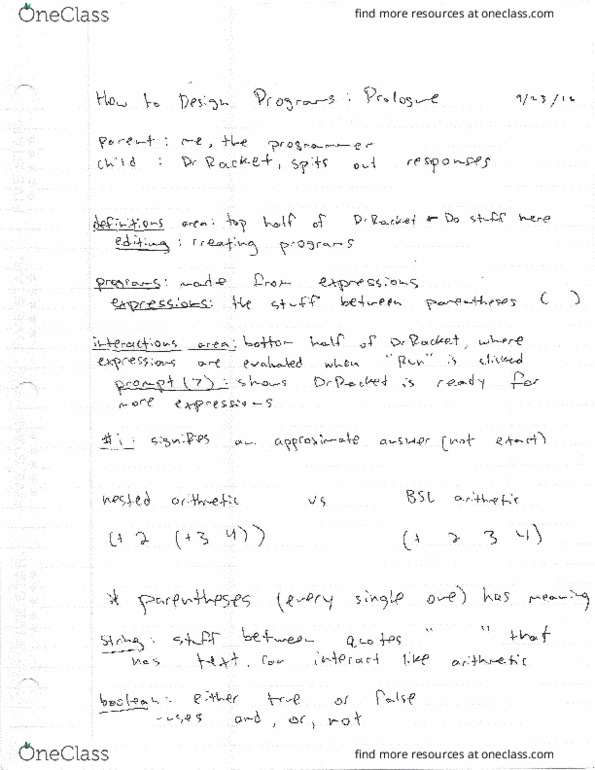 OneClass
find more resources at oneclass.com
How to Design Programs: Prologue 9/23/16
parent: me, the programmer
child: DrRacket, spits out responses
definitions area: top half of DrRacket ← Do stuff here
editing: creating programs
programs: made from expressions
expressions: the stuff between parentheses ( )
interactions area: bottom half of DrRacket, where
expressions are evaluated when "Run" is clicked
prompt (>): shows DrRacket is ready for
more expressions
#i: signifies an approximate answer (not exact)
nested arithmetic vs BSL arithmetic
(+ 2 (+3 4)) (+ 2 3 4)
* parentheses (every single one) has meaning
string: stuff between quotes " " that
has text, can interact like arithmetic
boolean: either true or false
-uses and, or, not
OneClass
find more resources at oneclass.com